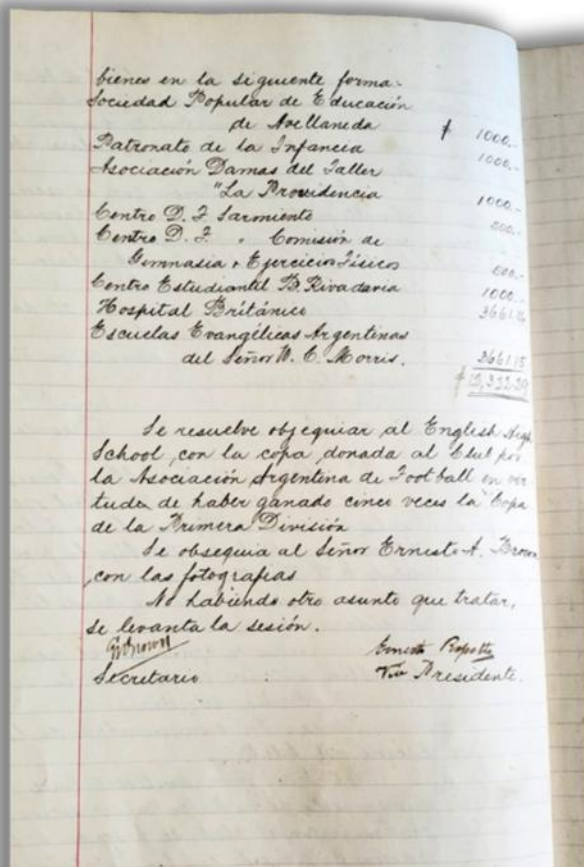 bienes en la siguiente forma.
Sociedad Popular de Educación
de Avellaneda $ 1000.-
Patronato de la Infancia 1000.-
Asociación Damas del Taller
"La Providencia 1000.-
Centro D. F. Sarmiento 500.-
Centro D. F. " Comisión de
Gimnasia y Ejercicios Físicos 500.-
Centro Estudiantil B. Rivadavia 1000.-
Hospital Británico 3661.14
Escuelas Evangélicas Argentinas
del Señor W. C. Morris. 3661.15
$ 12,322.29
Se resuelve obsequiar al English High
School, con la copa donada al Club por
la Asociación Argentina de Football en vir
tud de haber ganado cinco veces la Copa
de la Primera División
Se obsequia al Señor Ernesto A. Brown
con las fotografias
No habiendo otro asunto que tratar,
se levanta la sesión.
Brown Ernesto
Secretario Vice Presidente.